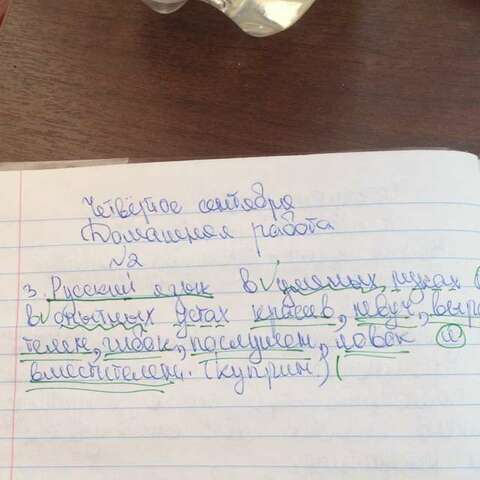 Четвёртое сентября
Домашняя работа
№2
3. Русский язык в умелых руках
в опытных устах красив, певуч, выра
телен, гибок, послушен, ловок и
вместителен. (Куприн.) (